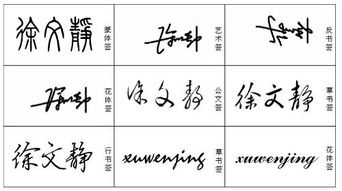 徐文静 篆体签
徐文静 艺术签
徐文静 反书签
徐文静 花体签
徐文静 公文签
徐文静 草书签
徐文静 行书签
xuwenjing 草书签
xuwenjing 花体签